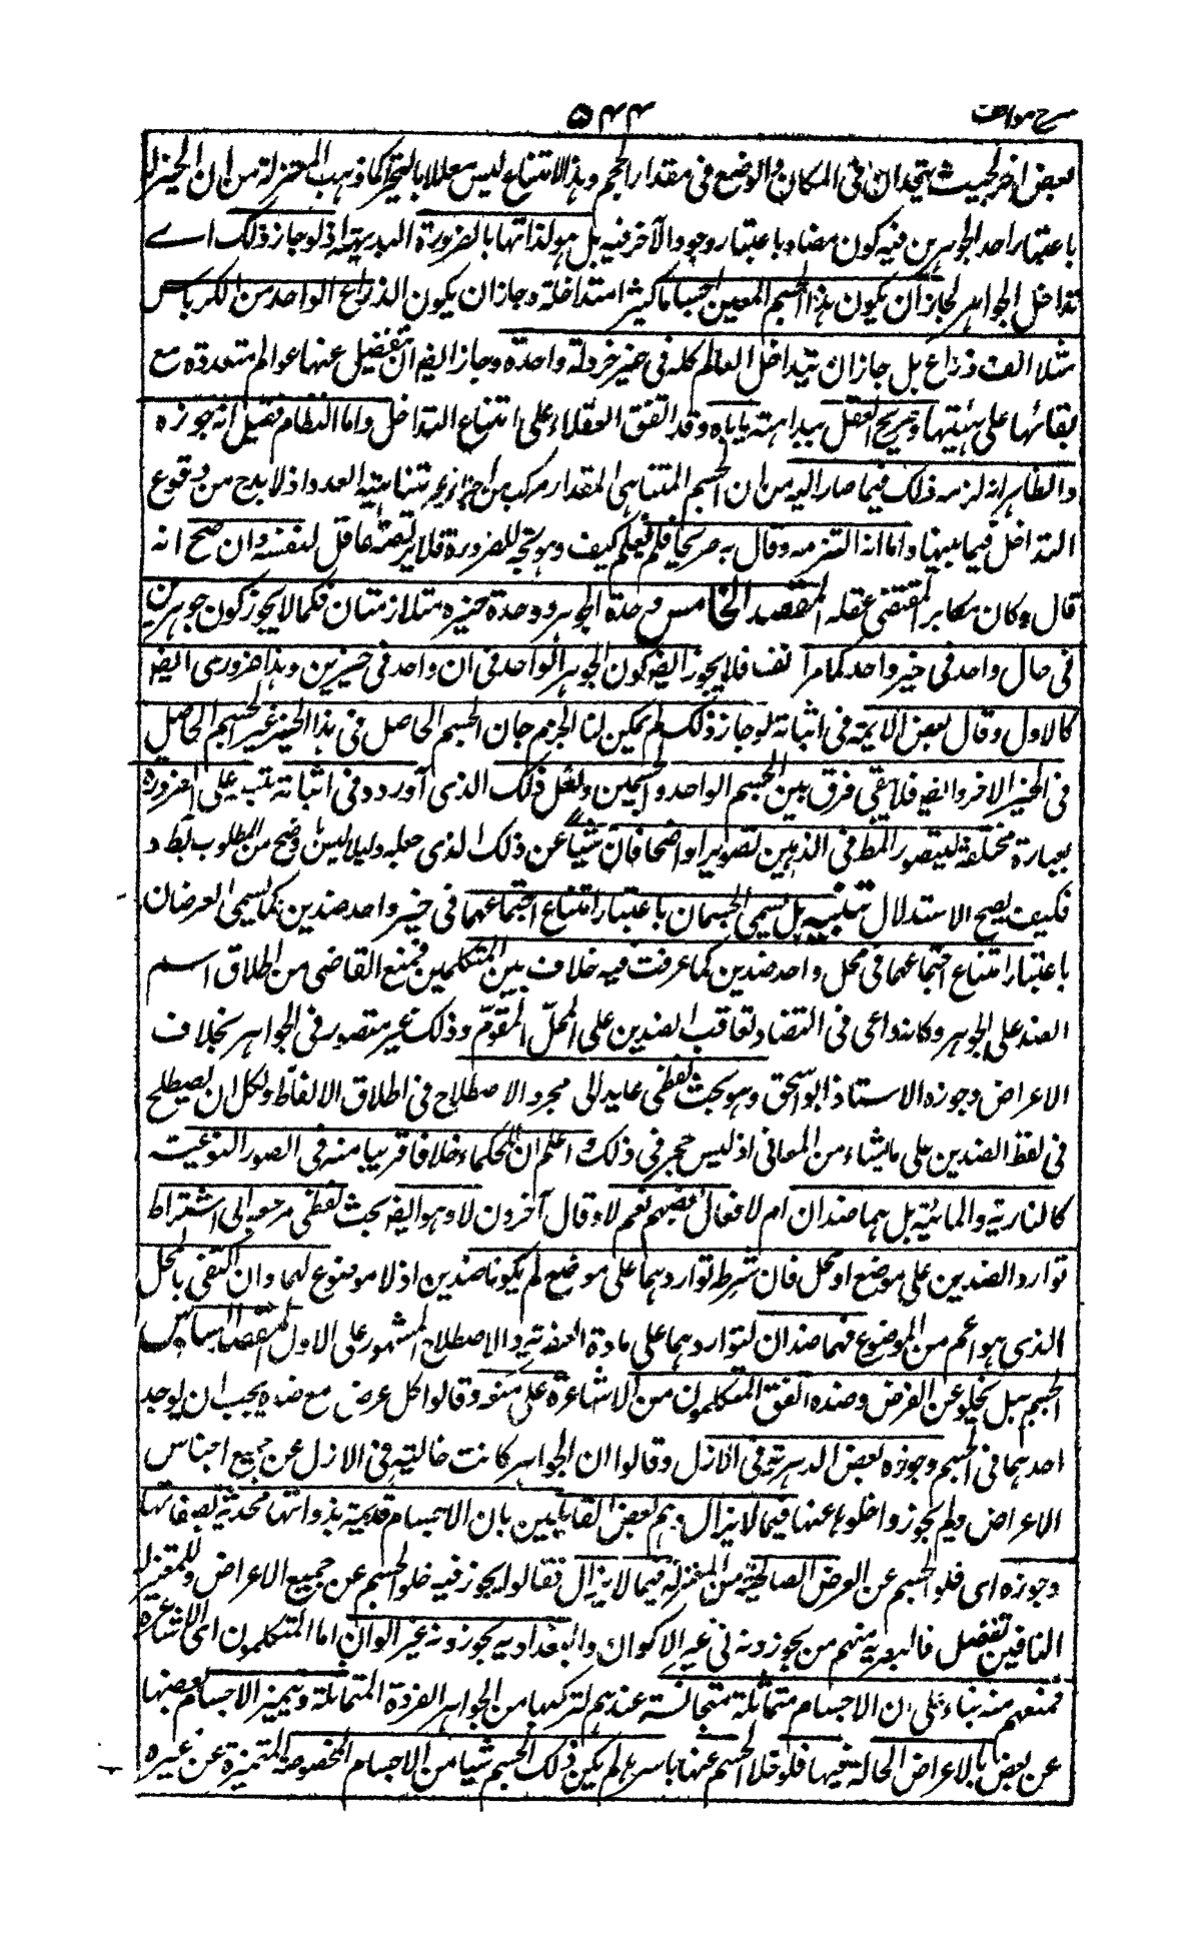 شرح مواقف
۵۴۴
بعض اخر بحيث يتحدان فى المكان والوضع فى مقدار الحجم وهذا الامتناع ليس معللا بالتحيز كما ذهب المعتزلة من ان الحيز له
باعتبار احد الجوهرين فيه كون مضاد باعتبار وجود الآخر فيه بل هو لذاتها بالضرورة البديهية اذ لو جاز ذلك اے
تداخل الجواهر لجاز ان يكون هذا الجسم المعين اجساما كثيرة متداخلة وجاز ان يكون الذراع الواحد من الكرباس
مثلا الف ذراع بل جاز ان يتداخل العالم كله فى حيز خردلة واحدة وجاز ايضا ان ينفصل عنها عوالم متعددة مع
بقائها على هيئتها وصريح العقل ببداهته ياباه وقد اتفق العقلاء على امتناع التداخل واما النظام فقيل انه جوزه
والظاهر انه لزمه ذلك فيما صار اليه من ان الجسم المتناهى المقدار مركب من اجزاء غير متناهية العدد اذ لا بد ح من وقوع
التداخل فيما بينها واما انه التزمه وقال به صريحا فلم يعلم كيف وهو جحد للضرورة فلا يرتضيه عاقل لنفسه وان صح انه
قال وكان مكابر المقتضى عقله المقصد الخامس وحدة الجوهر ووحدة حيزه متلازمتان فكما لا يجوز كون جوهرين
فى حال واحد فى حيز واحد كما مر آنفا فلا يجوز ايضا كون الجوهر الواحد فى ان واحد فى حيزين وهذا ضرورى ايضا
كالاول وقال بعض الايمة فى اثباته لو جاز ذلك لم يمكن لنا الجزم بان الجسم الحاصل فى هذا الحيز غير الجسم الحاصل
فى الحيز الاخر وايضا فلا يبقى فرق بين الجسم الواحد والجسمين ولعل ذلك الذى اورده فى اثباته تنبيه على الضرورة
بعبارة مختلفة ليتصور المط فى الذهن تصويرا واضحا فان شيئا عن ذلك الذى جعله دليلا ليس باوضح من المطلوب
فكيف يصح الاستدلال تنبيه بل يسمى الجسمان باعتبار امتناع اجتماعهما فى حيز واحد ضدين كما يسمى العرضان
باعتبار امتناع اجتماعهما فى محل واحد ضدين كما عرفت فيه خلاف بين المتكلمين فمنع القاضى من اطلاق اسم
الضد على الجوهر وكانه داعى فى التضاد تعاقب الضدين على المحل المقوم وذلك غير متصور فى الجواهر بخلاف
الاعراض وجوزه الاستاذ ابو اسحق وهو بحث لفظى عايد الى مجرد الاصطلاح فى اطلاق الالفاظ ولكل ان يصطلح
فى لفظ الضدين على ما يشاء من المعانى اذ ليس حجر فى ذلك واعلم ان للحكماء خلافا قريبا منه فى الصور النوعية
كالنارية والمائية بل هما ضدان ام لا فقال بعضهم نعم لا وقال آخرون لا وهو ايضا بحث لفظى مرجعه الى اشتراط
توارد الضدين على موضع او محل فان شرط تواردهما على موضع لم يكونا ضدين اذ لا موضوع لهما وان اكتفى بالمحل
الذى هو اعم من الموضوع فهما ضدان لتواردهما على مادة العنصرية والاصطلاح المشهور على الاول المقصد السادس
الجسم هل يخلو عن العرض وضده اتفق المتكلمون من الاشاعرة على منعه وقالوا كل عرض مع ضده يجب ان يوجد
احدهما فى الجسم وجوزه بعض الدهرية فى الازل وقالوا ان الجواهر كانت خالية فى الازل عن جميع اجناس
الاعراض ولم يجوزوا خلوها عنها فيما لا يزال وهم بعض القايلين بان الاجسام قديمة بذواتها محدثة بصفاتها
وجوزه اى خلو الجسم عن العرض الصالحية من المعتزلة فيما لا يزال فقالوا يجوز فيه خلو الجسم عن جميع الاعراض وللمعتزلة
النافين تفصيل فالبصرية منهم من يجوزونه فى غير الاكوان والبغدادية يجوزونه غير الوان اما المتكلمون اى الاشاعرة
فمنعهم منه بناء على ان الاجسام متماثلة متجانسة عندهم لتركبها من الجواهر الفردة المتماثلة وتميز الاجسام بعضها
عن بعض بالاعراض الحالة فيها فلو خلا الجسم عنها باسرها لم يكن ذلك الجسم شيا من الاجسام المخصوصة المتميزة عن غيره